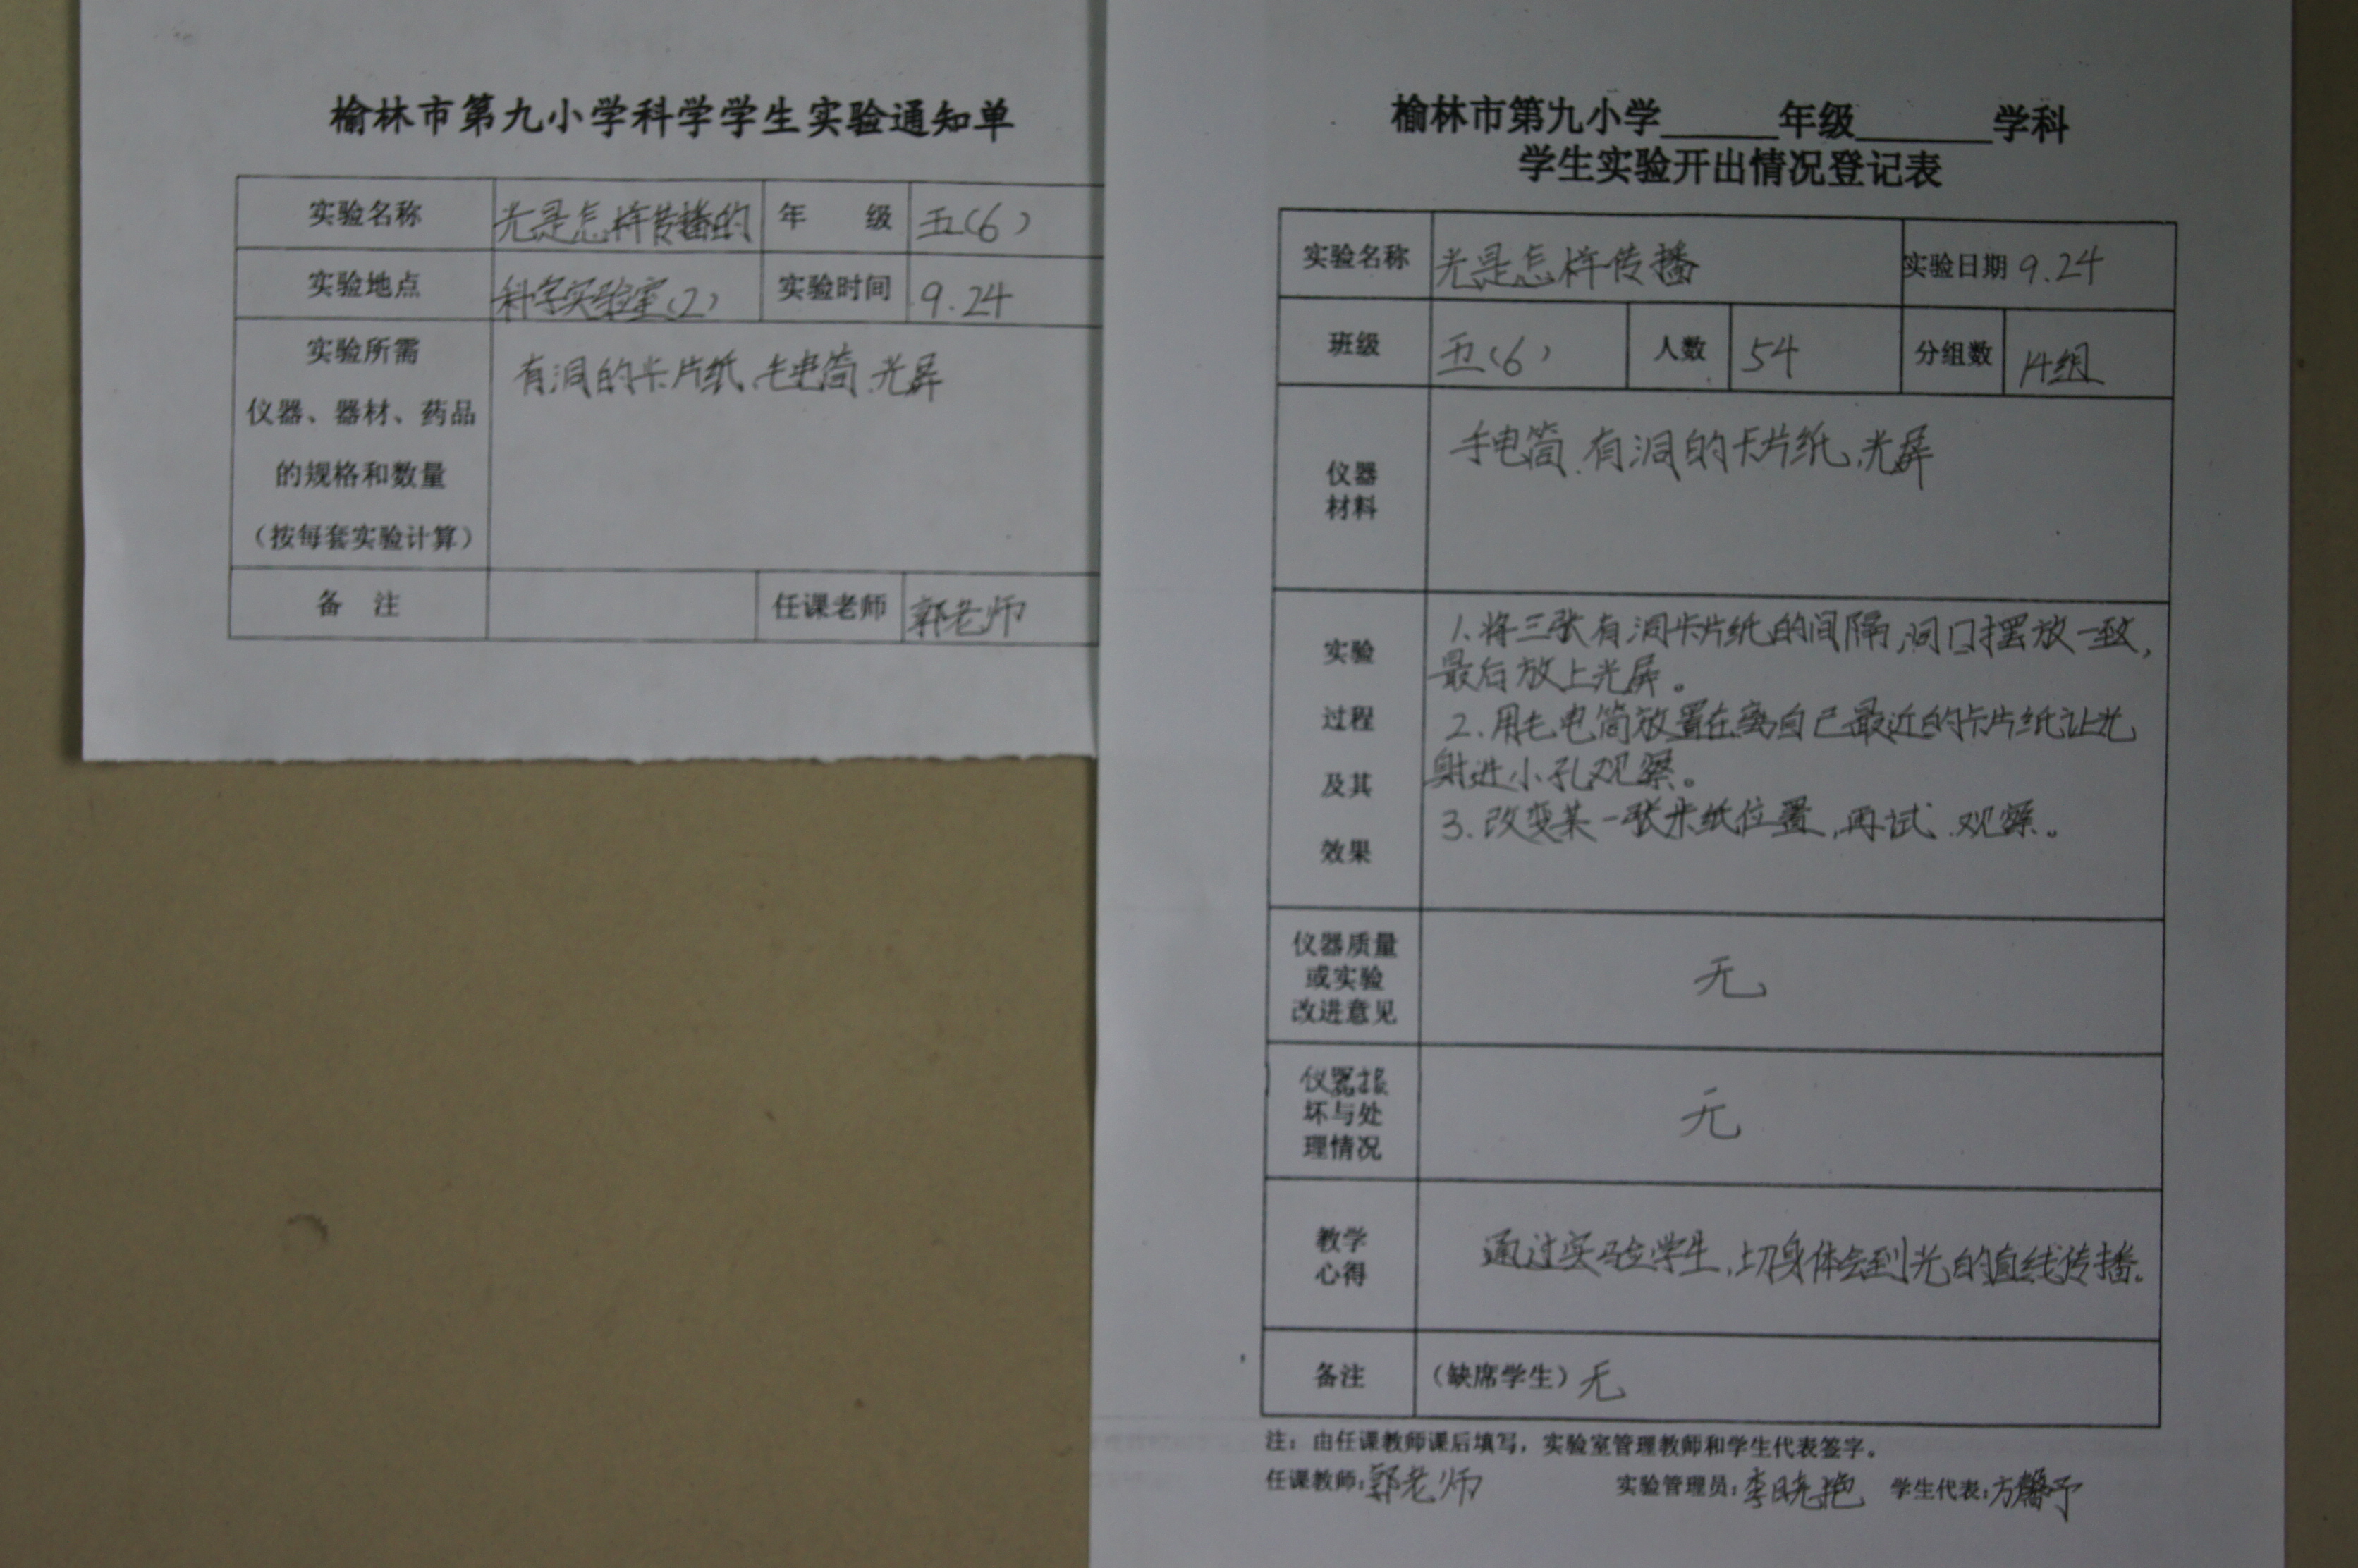 榆林市第九小学科学学生实验通知单
实验名称 光是怎样传播的 年 级 五(6)
实验地点 科学实验室(2) 实验时间 9.24
实验所需
仪器、器材、药品
的规格和数量
(按每套实验计算)
有洞的卡片纸、手电筒、光屏
备 注 任课老师 郭老师
榆林市第九小学______年级______学科
学生实验开出情况登记表
实验名称 光是怎样传播 实验日期 9.24
班级 五(6) 人数 54 分组数 14组
仪器
材料
手电筒、有洞的卡片纸、光屏
实验
过程
及其
效果
1、将三张有洞卡片纸的间隔,洞口摆放一致,
最后放上光屏。
2、用手电筒放置在离自己最近的卡片纸让光
射进小孔观察。
3、改变某一张卡纸位置,再试、观察。
仪器质量
或实验
改进意见
无
仪器损
坏与处
理情况
无
教学
心得
通过实验学生,切身体会到光的直线传播。
备注 (缺席学生) 无
注:由任课教师课后填写,实验室管理教师和学生代表签字。
任课教师:郭老师 实验管理员:李晓艳 学生代表:方馨予